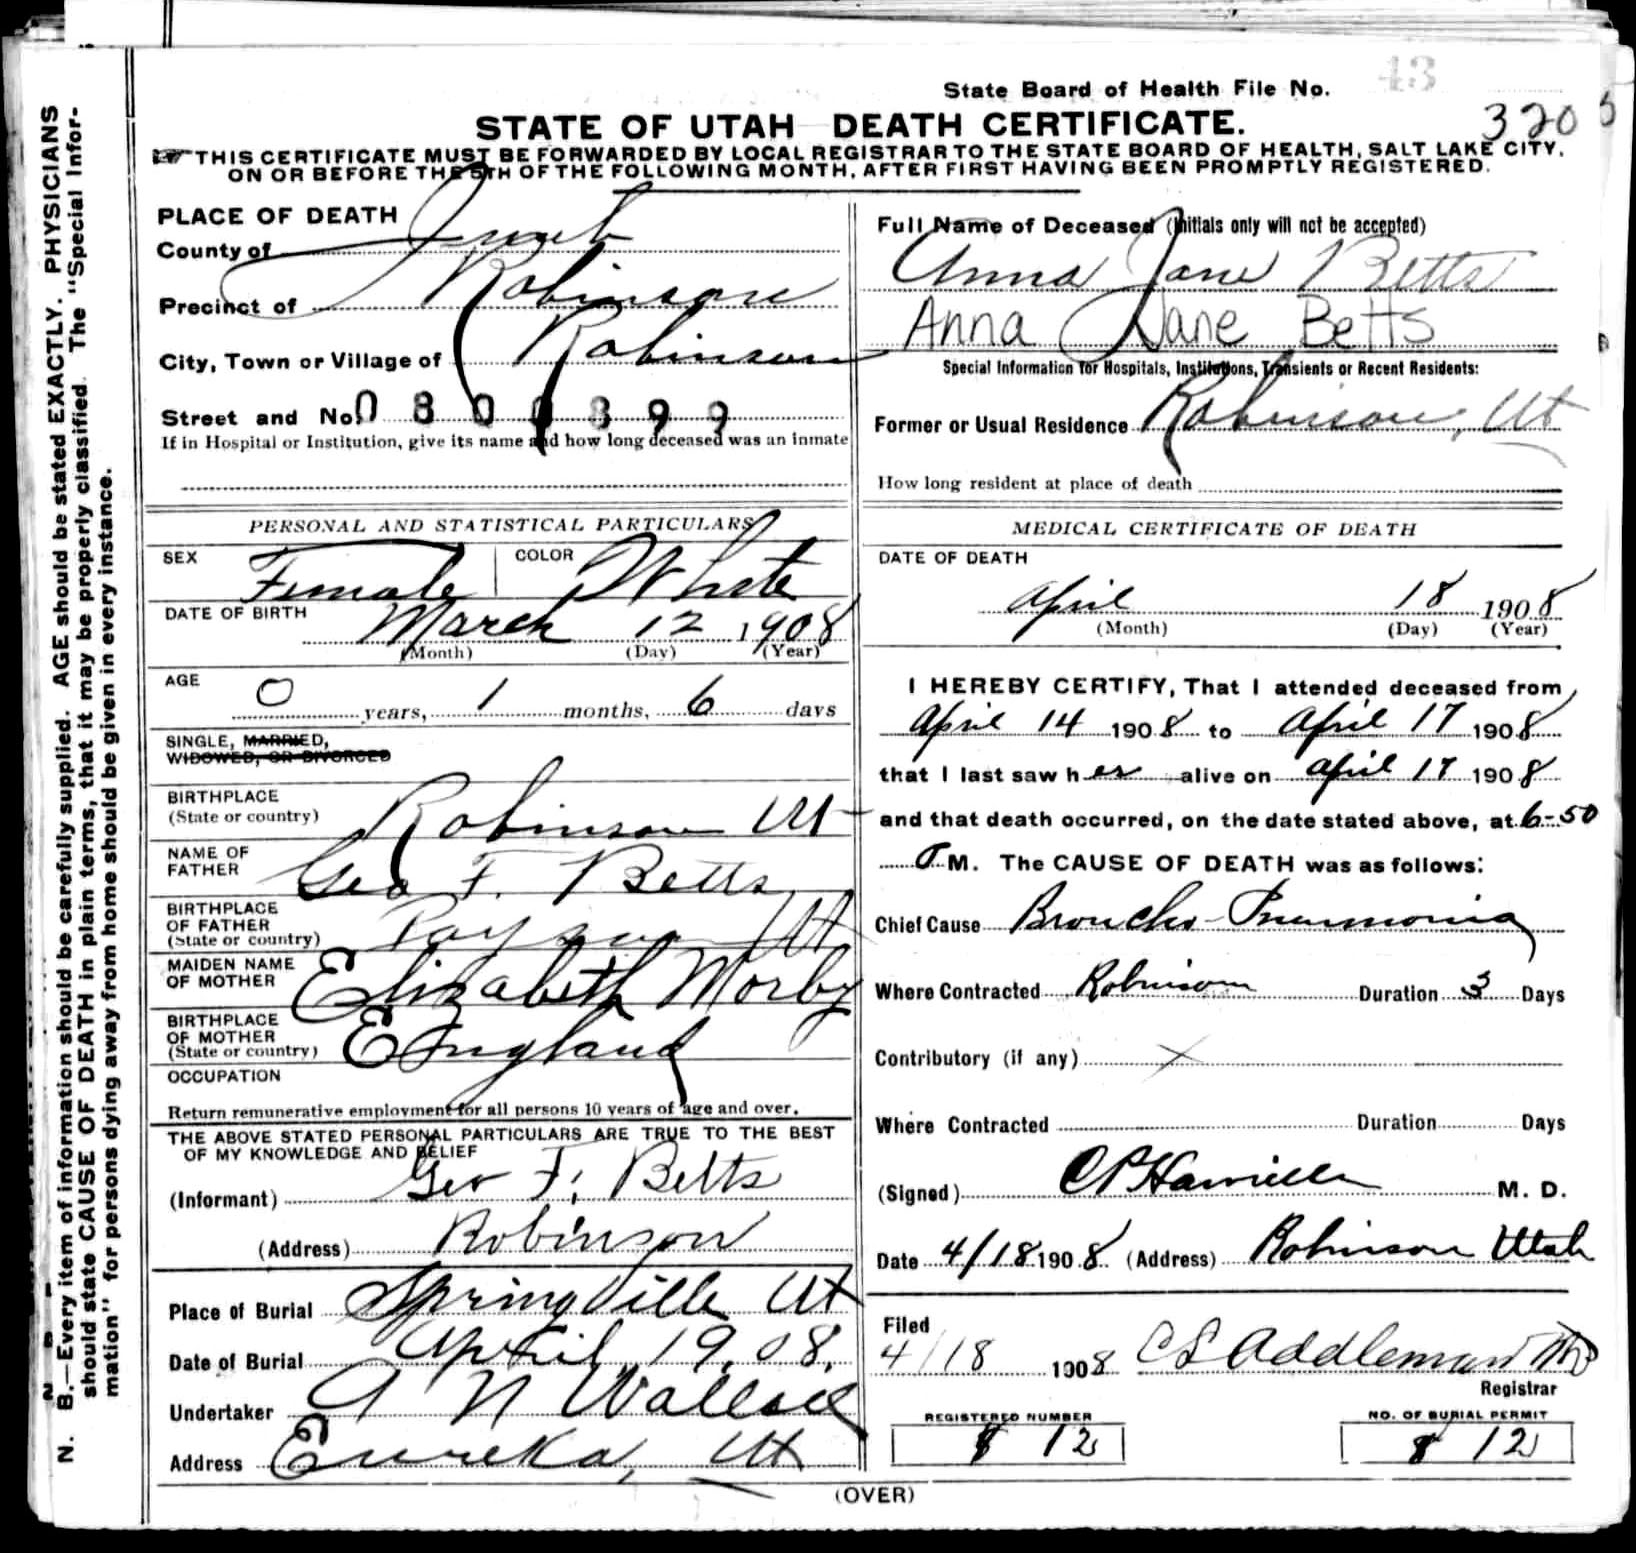 State Board of Health File No. 43
3205
STATE OF UTAH DEATH CERTIFICATE.
THIS CERTIFICATE MUST BE FORWARDED BY LOCAL REGISTRAR TO THE STATE BOARD OF HEALTH, SALT LAKE CITY,
ON OR BEFORE THE 5TH OF THE FOLLOWING MONTH, AFTER FIRST HAVING BEEN PROMPTLY REGISTERED.
N. B.—Every item of information should be carefully supplied. AGE should be stated EXACTLY. PHYSICIANS
should state CAUSE OF DEATH in plain terms, that it may be properly classified. The "Special Infor-
mation" for persons dying away from home should be given in every instance.
PLACE OF DEATH
County of Juab
Precinct of Robinson
City, Town or Village of Robinson
Street and No.
If in Hospital or Institution, give its name and how long deceased was an inmate
Full Name of Deceased (Initials only will not be accepted)
Anna Jane Betts
Anna Jane Betts
Special Information for Hospitals, Institutions, Transients or Recent Residents:
Former or Usual Residence Robinson, Ut
How long resident at place of death
PERSONAL AND STATISTICAL PARTICULARS
SEX Female COLOR White
DATE OF BIRTH March 12 1908
(Month) (Day) (Year)
AGE 0 years, 1 months, 6 days
SINGLE, MARRIED,
WIDOWED, OR DIVORCED
BIRTHPLACE
(State or country) Robinson Ut
NAME OF
FATHER Geo F. Betts
BIRTHPLACE
OF FATHER
(State or country) Payson Ut
MAIDEN NAME
OF MOTHER Elizabeth Morby
BIRTHPLACE
OF MOTHER
(State or country) England
OCCUPATION
Return remunerative employment for all persons 10 years of age and over.
THE ABOVE STATED PERSONAL PARTICULARS ARE TRUE TO THE BEST
OF MY KNOWLEDGE AND BELIEF
(Informant) Geo F. Betts
(Address) Robinson
Place of Burial Springville Ut
Date of Burial April 19, 08.
Undertaker A N Wallace
Address Eureka, Ut
MEDICAL CERTIFICATE OF DEATH
DATE OF DEATH
April 18 1908
(Month) (Day) (Year)
I HEREBY CERTIFY, That I attended deceased from
April 14 1908 to April 17 1908
that I last saw her alive on April 17 1908
and that death occurred, on the date stated above, at 6-50
M. The CAUSE OF DEATH was as follows:
Chief Cause Broncho-Pneumonia
Where Contracted Robinson Duration 3 Days
Contributory (if any)
Where Contracted Duration Days
(Signed) M. D.
Date 4/18 1908 (Address) Robinson Utah
Filed
4/18 1908 C S Addleman MD
Registrar
REGISTERED NUMBER
12
NO. OF BURIAL PERMIT
12
(OVER)